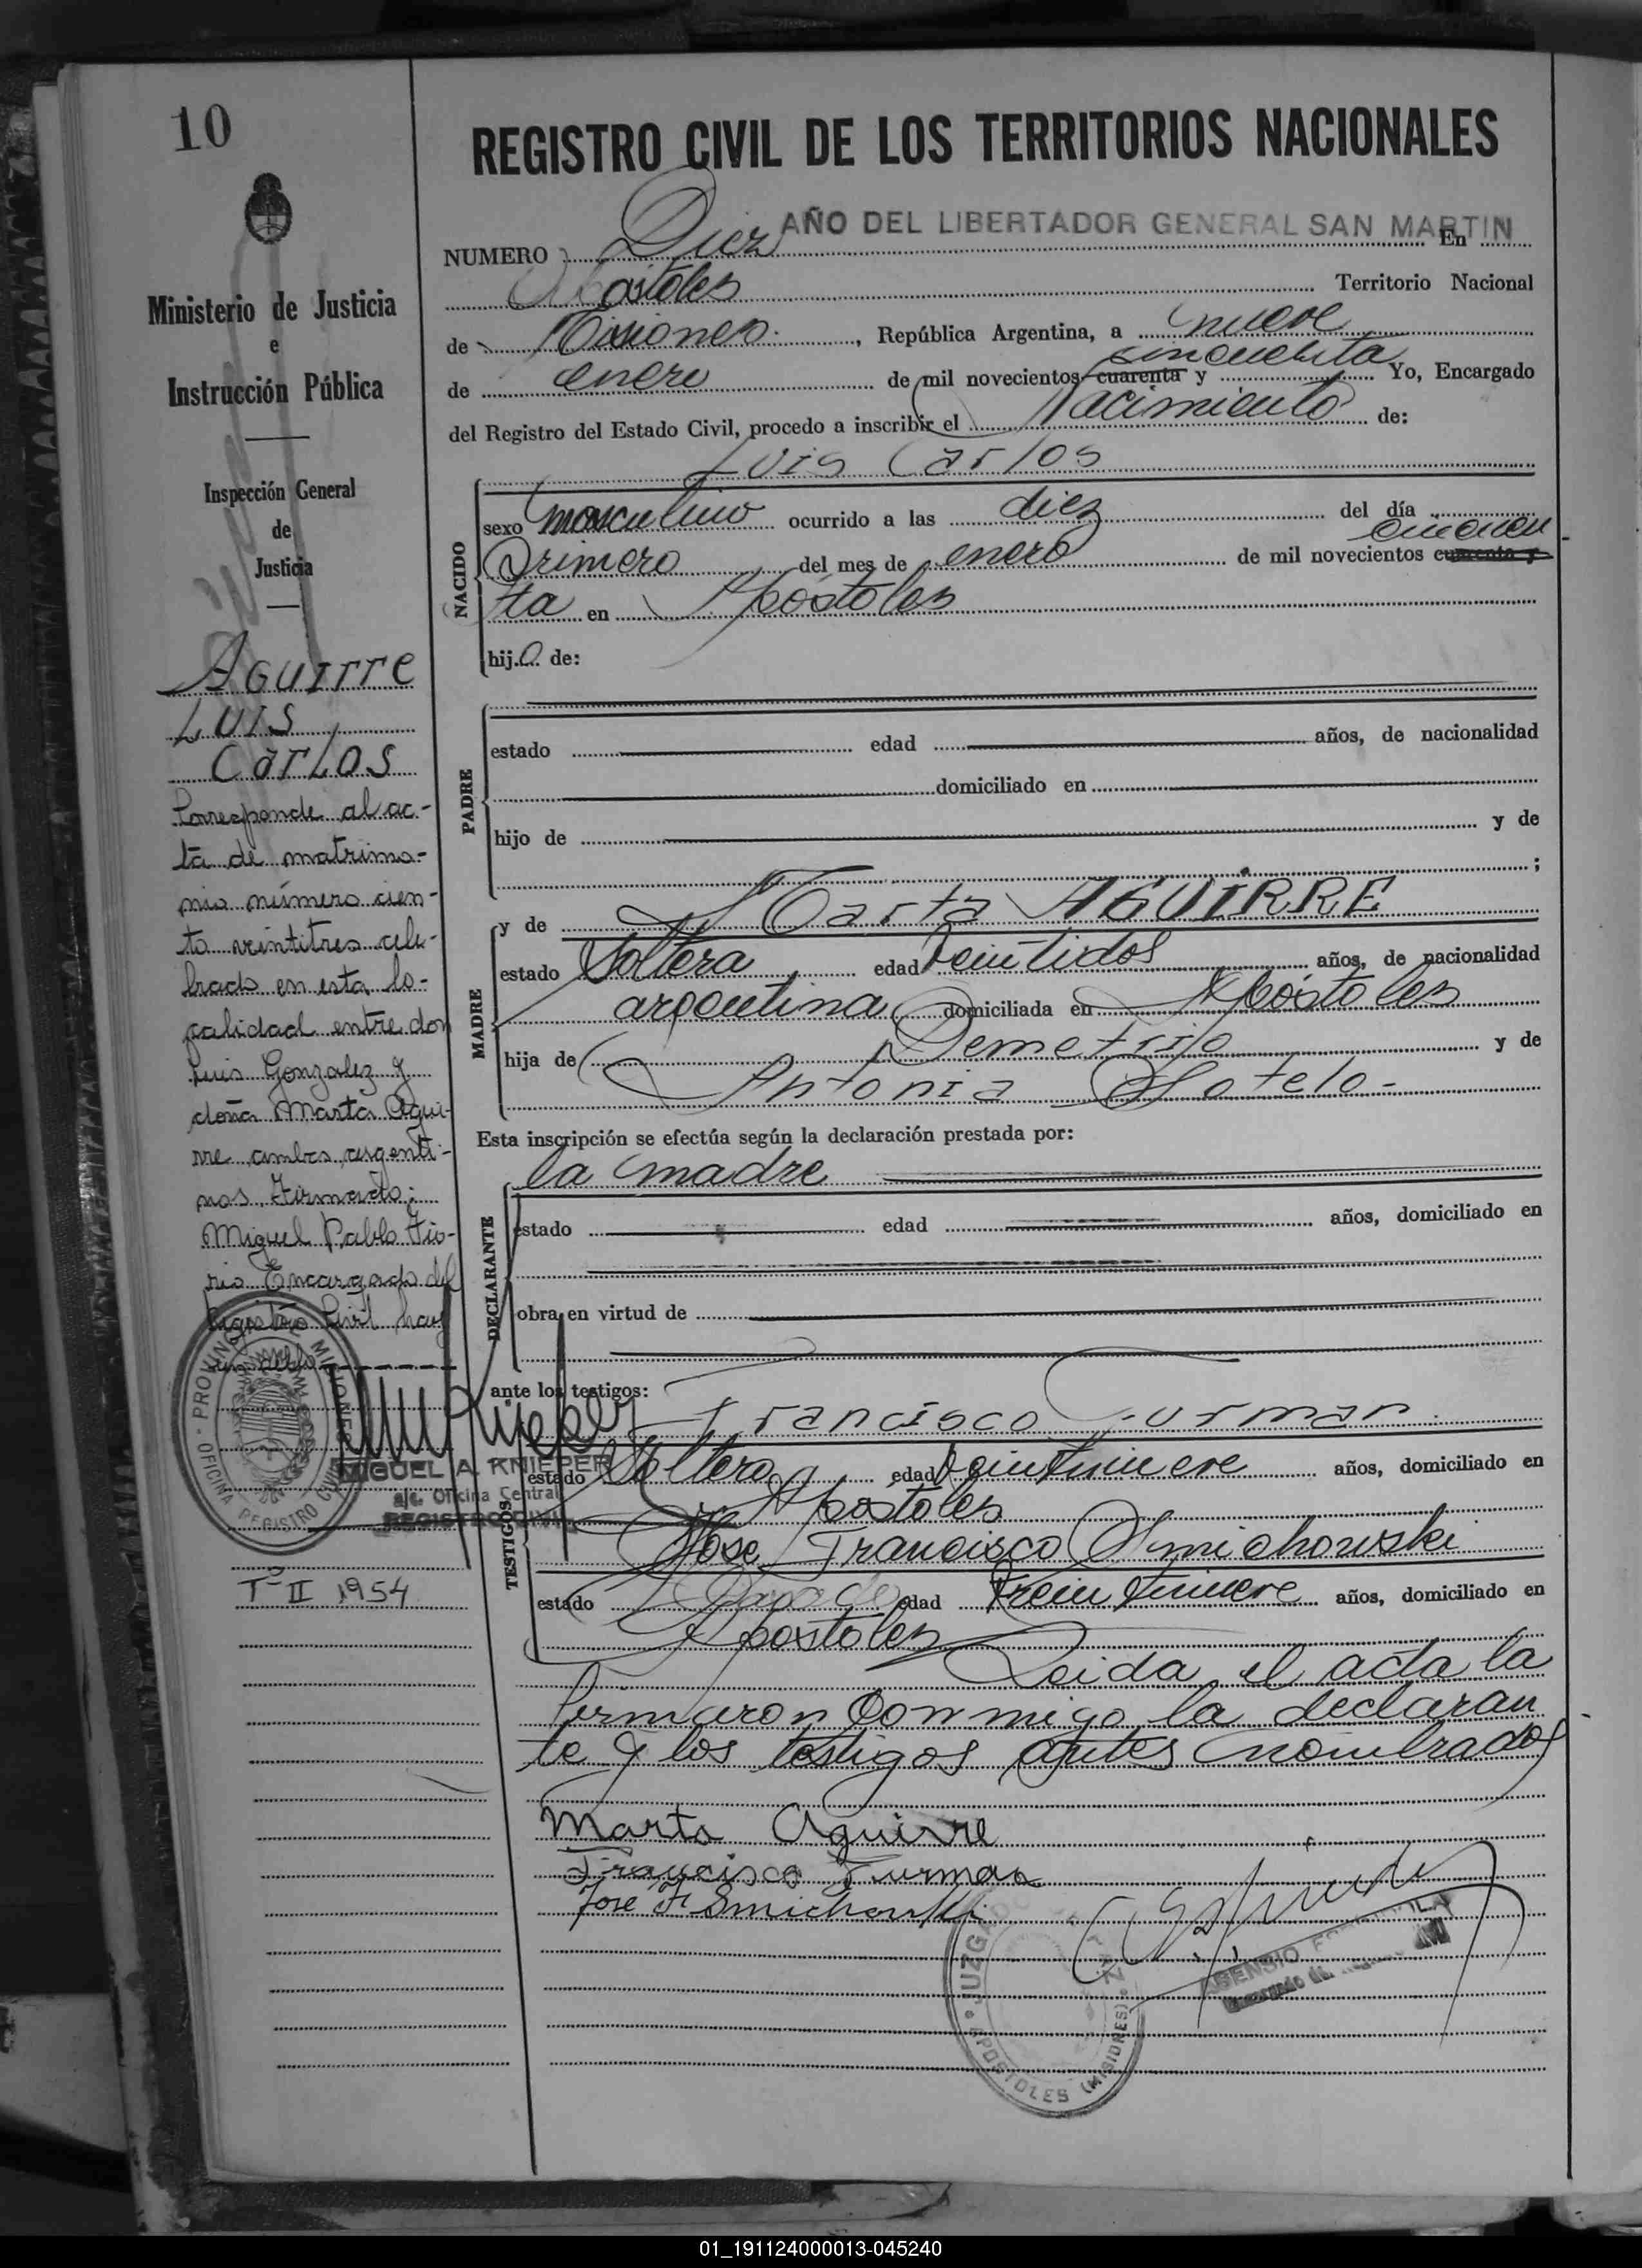 10
Ministerio de Justicia
e
Instrucción Pública
Inspección General
de
Justicia
AGUIRRE
LUIS
CARLOS
Corresponde al ac-
ta de matrimo-
nio número cien-
to veintitres cele-
brado en esta lo-
calidad entre don
Luis Gonzalez y
doña Marta Agui-
rre ambos argenti-
nos. Firmado:
Miguel Pablo
Encargado del
Registro Civil hay
un sello
PROVINCIA DE MISIONES
OFICINA REGISTRO CIVIL
MIGUEL A. KNIEPER
a/c. Oficina Central
REGISTRO CIVIL
Tº II 1954
REGISTRO CIVIL DE LOS TERRITORIOS NACIONALES
AÑO DEL LIBERTADOR GENERAL SAN MARTIN
NUMERO Diez En
Apóstoles Territorio Nacional
de Misiones, República Argentina, a nueve
de enero de mil novecientos cuarenta y cincuenta Yo, Encargado
del Registro del Estado Civil, procedo a inscribir el Nacimiento de:
Luis Carlos
NACIDO
sexo masculino ocurrido a las diez del día
primero del mes de enero de mil novecientos cuarenta y cincuen
ta en Apóstoles
hijo de:
PADRE
estado edad años, de nacionalidad
domiciliado en
hijo de y de
;
MADRE
y de Marta AGUIRRE
estado Soltera edad Veintidos años, de nacionalidad
argentina domiciliada en Apóstoles
hija de Demetrio y de
Antonia Sotelo-
Esta inscripción se efectúa según la declaración prestada por:
la madre
DECLARANTE
estado edad años, domiciliado en
obra en virtud de
ante los testigos:
TESTIGOS
Francisco Furman
estado Soltero edad Veintinueve años, domiciliado en
Apóstoles
José Francisco Smichowski
estado Casado edad treintinueve años, domiciliado en
Apóstoles
Leida el acta la
firmaron conmigo la declaran
te y los testigos antes nombrados
Marta Aguirre
Francisco Furman
José F. Smichowski
JUZGADO DE PAZ
APOSTOLES (MISIONES)
ASENSIO
Encargado del
01_191124000013-045240